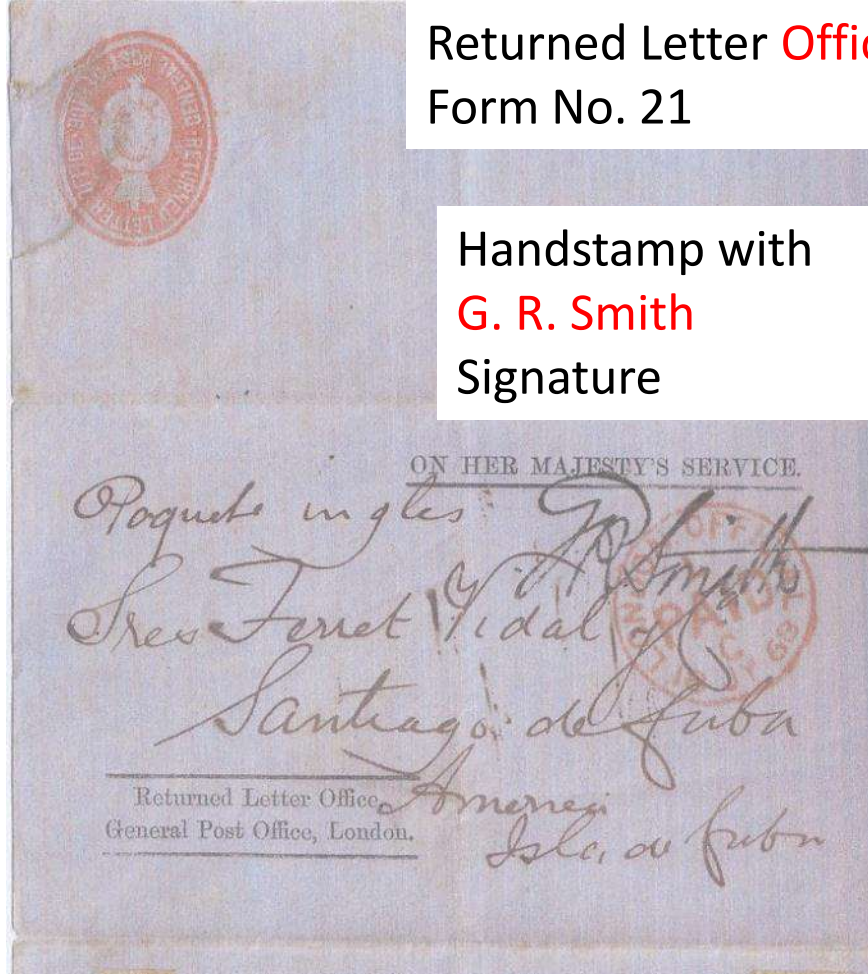 Returned Letter Offic
Form No. 21
Handstamp with
G. R. Smith
Signature
GENERAL POST OFFICE RETURNED LETTER
ON HER MAJESTY'S SERVICE.
Paquete ingles
GRSmith
PAID
C
69
Sres Ferret Vidal y C
Santiago de Cuba
America
Isla de Cuba
Returned Letter Office,
General Post Office, London.